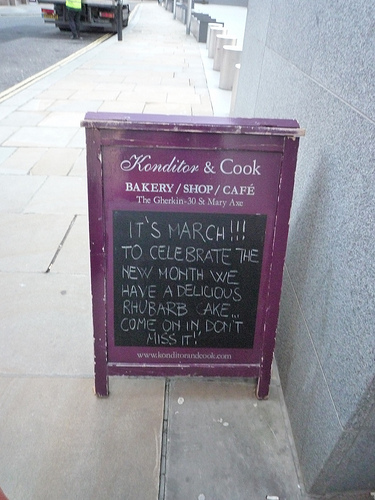 Konditor & Cook
BAKERY / SHOP / CAFÉ
The Gherkin-30 St Mary Axe
IT'S MARCH!!!
TO CELEBRATE THE
NEW MONTH WE
HAVE A DELICIOUS
RHUBARB CAKE...
COME ON IN, DON'T
MISS IT!
www.konditorandcook.com